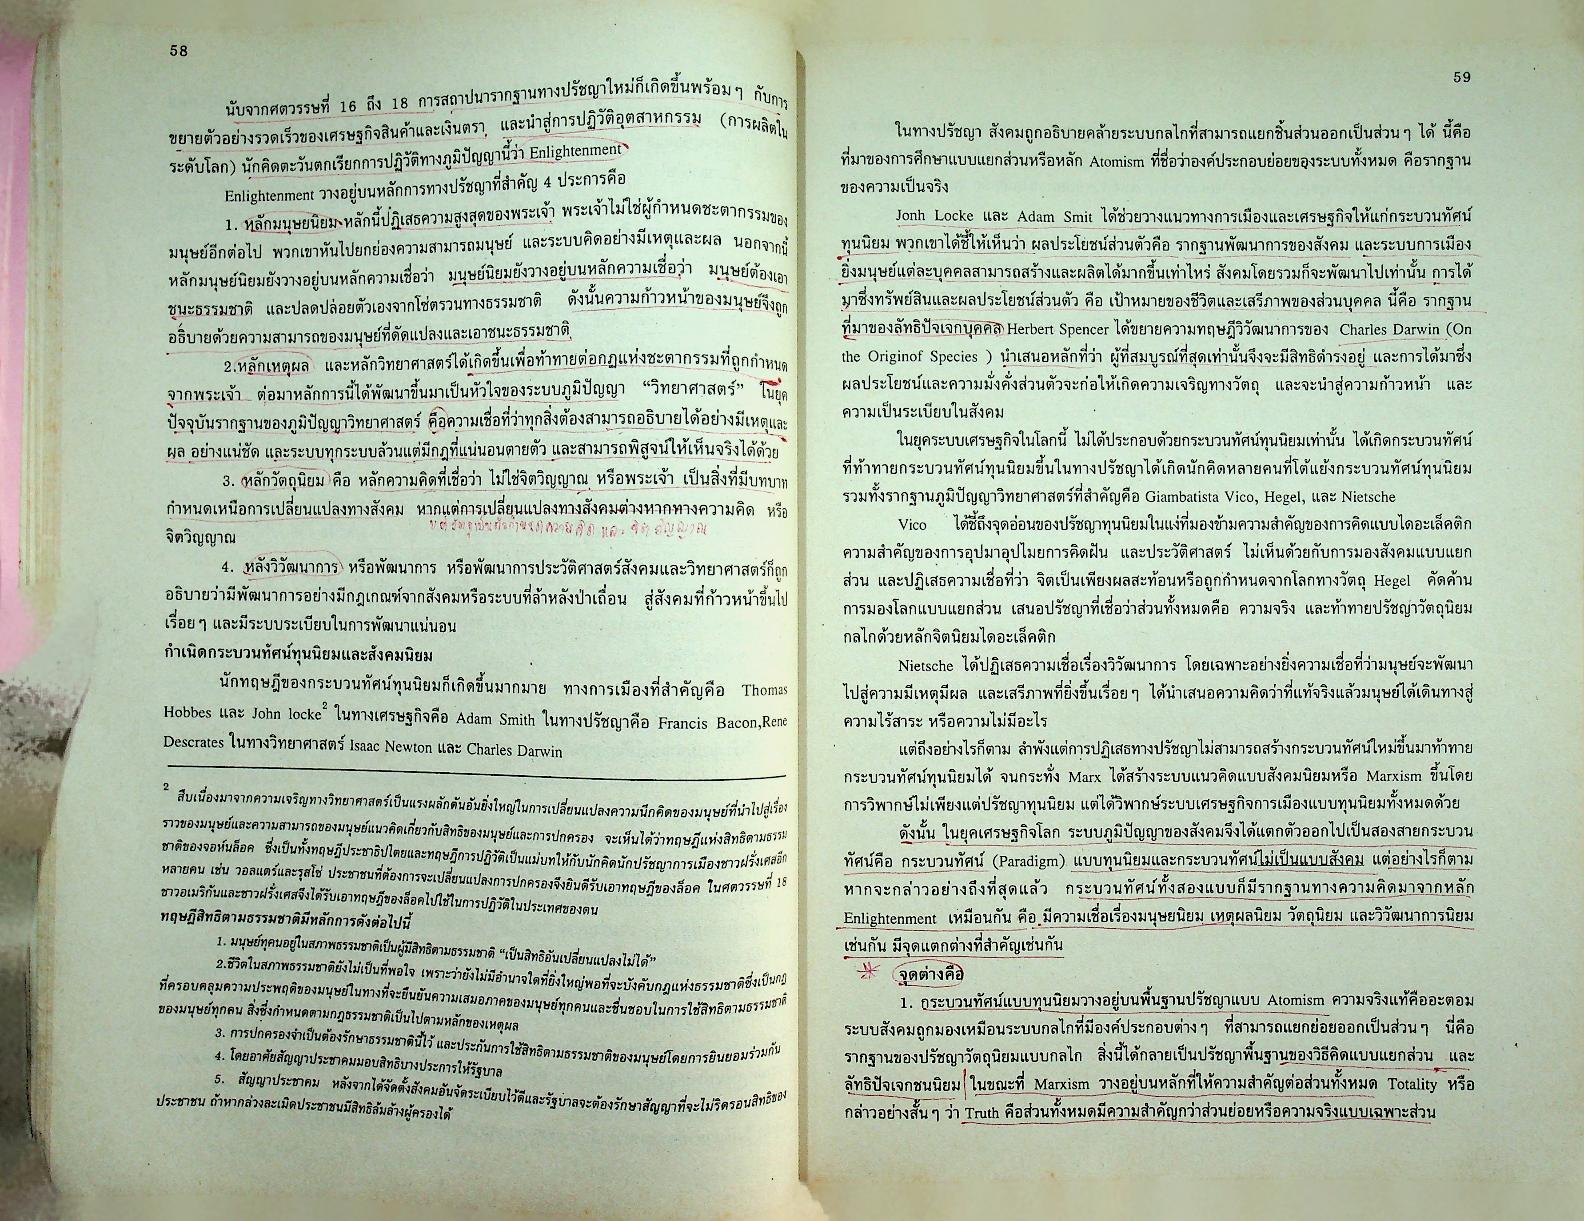 58
นับจากศตวรรษที่ 16 ถึง 18 การสถาปนารากฐานทางปรัชญาใหม่ก็เกิดขึ้นพร้อมๆ กับการ
ขยายตัวอย่างรวดเร็วของเศรษฐกิจสินค้าและเงินตรา และนำสู่การปฏิวัติอุตสาหกรรม (การผลิตใน
ระดับโลก) นักคิดตะวันตกเรียกการปฏิวัติทางภูมิปัญญานี้ว่า Enlightenment
Enlightenment วางอยู่บนหลักการทางปรัชญาที่สำคัญ 4 ประการคือ
1. หลักมนุษยนิยม หลักนี้ปฏิเสธความสูงสุดของพระเจ้า พระเจ้าไม่ใช่ผู้กำหนดชะตากรรมของ
มนุษย์อีกต่อไป พวกเขาหันไปยกย่องความสามารถมนุษย์ และระบบคิดอย่างมีเหตุและผล นอกจากนี้
หลักมนุษย์นิยมยังวางอยู่บนหลักความเชื่อว่า มนุษย์นิยมยังวางอยู่บนหลักความเชื่อว่า มนุษย์ต้องเอา
ชนะธรรมชาติ และปลดปล่อยตัวเองจากโซ่ตรวนทางธรรมชาติ ดังนั้นความก้าวหน้าของมนุษย์จึงถูก
อธิบายด้วยความสามารถของมนุษย์ที่ดัดแปลงและเอาชนะธรรมชาติ
2.หลักเหตุผล และหลักวิทยาศาสตร์ได้เกิดขึ้นเพื่อท้าทายต่อกฎแห่งชะตากรรมที่ถูกกำหนด
จากพระเจ้า ต่อมาหลักการนี้ได้พัฒนาขึ้นมาเป็นหัวใจของระบบภูมิปัญญา “วิทยาศาสตร์” ในยุค
ปัจจุบันรากฐานของภูมิปัญญาวิทยาศาสตร์ คือความเชื่อที่ว่าทุกสิ่งต้องสามารถอธิบายได้อย่างมีเหตุและ
ผล อย่างแน่ชัด และระบบทุกระบบล้วนแต่มีกฎที่แน่นอนตายตัว และสามารถพิสูจน์ให้เห็นจริงได้ด้วย
3. หลักวัตถุนิยม คือ หลักความคิดที่เชื่อว่า ไม่ใช่จิตวิญญาณ หรือพระเจ้า เป็นสิ่งที่มีบทบาท
กำหนดเหนือการเปลี่ยนแปลงทางสังคม หากแต่การเปลี่ยนแปลงทางสังคมต่างหากทางความคิด หรือ
จิตวิญญาณ
4. หลังวิวัฒนาการ หรือพัฒนาการ หรือพัฒนาการประวัติศาสตร์สังคมและวิทยาศาสตร์ก็ถูก
อธิบายว่ามีพัฒนาการอย่างมีกฎเกณฑ์จากสังคมหรือระบบที่ล้าหลังป่าเถื่อน สู่สังคมที่ก้าวหน้าขึ้นไป
เรื่อยๆ และมีระบบระเบียบในการพัฒนาแน่นอน
กำเนิดกระบวนทัศน์ทุนนิยมและสังคมนิยม
นักทฤษฎีของกระบวนทัศน์ทุนนิยมก็เกิดขึ้นมากมาย ทางการเมืองที่สำคัญคือ Thomas
Hobbes และ John locke2 ในทางเศรษฐกิจคือ Adam Smith ในทางปรัชญาคือ Francis Bacon,Rene
Descrates ในทางวิทยาศาสตร์ Isaac Newton และ Charles Darwin
2 สืบเนื่องมาจากความเจริญทางวิทยาศาสตร์เป็นแรงผลักดันอันยิ่งใหญ่ในการเปลี่ยนแปลงความนึกคิดของมนุษย์ที่นำไปสู่เรื่อง
ราวของมนุษย์และความสามารถของมนุษย์แนวคิดเกี่ยวกับสิทธิของมนุษย์และการปกครอง จะเห็นได้ว่าทฤษฎีแห่งสิทธิตามธรรม
ชาติของจอห์นล็อค ซึ่งเป็นทั้งทฤษฎีประชาธิปไตยและทฤษฎีการปฏิวัติเป็นแม่บทให้กับนักคิดนักปรัชญาการเมืองชาวฝรั่งเศสอีก
หลายคน เช่น วอลแตร์และรุสโซ่ ประชาชนที่ต้องการจะเปลี่ยนแปลงการปกครองจึงยินดีรับเอาทฤษฎีของล็อค ในศตวรรษที่ 18
ชาวอเมริกันและชาวฝรั่งเศสจึงได้รับเอาทฤษฎีของล็อคไปใช้ในการปฏิวัติในประเทศของตน
ทฤษฎีสิทธิตามธรรมชาติมีหลักการดังต่อไปนี้
1. มนุษย์ทุกคนอยู่ในสภาพธรรมชาติเป็นผู้มีสิทธิตามธรรมชาติ “เป็นสิทธิอันเปลี่ยนแปลงไม่ได้”
2.ชีวิตในสภาพธรรมชาติยังไม่เป็นที่พอใจ เพราะว่ายังไม่มีอำนาจใดที่ยิ่งใหญ่พอที่จะบังคับกฎแห่งธรรมชาติซึ่งเป็นกฎ
ที่ครอบคลุมความประพฤติของมนุษย์ในทางที่จะยืนยันความเสมอภาคของมนุษย์ทุกคนและชื่นชอบในการใช้สิทธิตามธรรมชาติ
ของมนุษย์ทุกคน สิ่งซึ่งกำหนดตามกฎธรรมชาติเป็นไปตามหลักของเหตุผล
3. การปกครองจำเป็นต้องรักษาธรรมชาตินี้ไว้ และประกันการใช้สิทธิตามธรรมชาติของมนุษย์โดยการยินยอมร่วมกัน
4. โดยอาศัยสัญญาประชาคมมอบสิทธิบางประการให้รัฐบาล
5. สัญญาประชาคม หลังจากได้จัดตั้งสังคมอันจัดระเบียบไว้ดีและรัฐบาลจะต้องรักษาสัญญาที่จะไม่ริดรอนสิทธิของ
ประชาชน ถ้าหากล่วงละเมิดประชาชนมีสิทธิล้มล้างผู้ครองได้
59
ในทางปรัชญา สังคมถูกอธิบายคล้ายระบบกลไกที่สามารถแยกชิ้นส่วนออกเป็นส่วนๆ ได้ นี้คือ
ที่มาของการศึกษาแบบแยกส่วนหรือหลัก Atomism ที่ชื่อว่าองค์ประกอบย่อยของระบบทั้งหมด คือรากฐาน
ของความเป็นจริง
Jonh Locke และ Adam Smit ได้ช่วยวางแนวทางการเมืองและเศรษฐกิจให้แก่กระบวนทัศน์
ทุนนิยม พวกเขาได้ชี้ให้เห็นว่า ผลประโยชน์ส่วนตัวคือ รากฐานพัฒนาการของสังคม และระบบการเมือง
ยิ่งมนุษย์แต่ละบุคคลสามารถสร้างและผลิตได้มากขึ้นเท่าไหร่ สังคมโดยรวมก็จะพัฒนาไปเท่านั้น การได้
มาซึ่งทรัพย์สินและผลประโยชน์ส่วนตัว คือ เป้าหมายของชีวิตและเสรีภาพของส่วนบุคคล นี้คือ รากฐาน
ที่มาของลัทธิปัจเจกบุคคล Herbert Spencer ได้ขยายความทฤษฎีวิวัฒนาการของ Charles Darwin (On
the Originof Species ) นำเสนอหลักที่ว่า ผู้ที่สมบูรณ์ที่สุดเท่านั้นจึงจะมีสิทธิดำรงอยู่ และการได้มาซึ่ง
ผลประโยชน์และความมั่งคั่งส่วนตัวจะก่อให้เกิดความเจริญทางวัตถุ และจะนำสู่ความก้าวหน้า และ
ความเป็นระเบียบในสังคม
ในยุคระบบเศรษฐกิจในโลกนี้ ไม่ได้ประกอบด้วยกระบวนทัศน์ทุนนิยมเท่านั้น ได้เกิดกระบวนทัศน์
ที่ท้าทายกระบวนทัศน์ทุนนิยมขึ้นในทางปรัชญาได้เกิดนักคิดหลายคนที่โต้แย้งกระบวนทัศน์ทุนนิยม
รวมทั้งรากฐานภูมิปัญญาวิทยาศาสตร์ที่สำคัญคือ Giambatista Vico, Hegel, และ Nietsche
Vico ได้ชี้ถึงจุดอ่อนของปรัชญาทุนนิยมในแง่ที่มองข้ามความสำคัญของการคิดแบบไดอะเล็คติก
ความสำคัญของการอุปมาอุปไมยการคิดฝัน และประวัติศาสตร์ ไม่เห็นด้วยกับการมองสังคมแบบแยก
ส่วน และปฏิเสธความเชื่อที่ว่า จิตเป็นเพียงผลสะท้อนหรือถูกกำหนดจากโลกทางวัตถุ Hegel คัดค้าน
การมองโลกแบบแยกส่วน เสนอปรัชญาที่เชื่อว่าส่วนทั้งหมดคือ ความจริง และท้าทายปรัชญาวัตถุนิยม
กลไกด้วยหลักจิตนิยมไดอะเล็คติก
Nietsche ได้ปฏิเสธความเชื่อเรื่องวิวัฒนาการ โดยเฉพาะอย่างยิ่งความเชื่อที่ว่ามนุษย์จะพัฒนา
ไปสู่ความมีเหตุมีผล และเสรีภาพที่ยิ่งขึ้นเรื่อยๆ ได้นำเสนอความคิดว่าที่แท้จริงแล้วมนุษย์ได้เดินทางสู่
ความไร้สาระ หรือความไม่มีอะไร
แต่ถึงอย่างไรก็ตาม ลำพังแต่การปฏิเสธทางปรัชญาไม่สามารถสร้างกระบวนทัศน์ใหม่ขึ้นมาท้าทาย
กระบวนทัศน์ทุนนิยมได้ จนกระทั่ง Marx ได้สร้างระบบแนวคิดแบบสังคมนิยมหรือ Marxism ขึ้นโดย
การวิพากษ์ไม่เพียงแต่ปรัชญาทุนนิยม แต่ได้วิพากษ์ระบบเศรษฐกิจการเมืองแบบทุนนิยมทั้งหมดด้วย
ดังนั้น ในยุคเศรษฐกิจโลก ระบบภูมิปัญญาของสังคมจึงได้แตกตัวออกไปเป็นสองสายกระบวน
ทัศน์คือ กระบวนทัศน์ (Paradigm) แบบทุนนิยมและกระบวนทัศน์ไม่เป็นแบบสังคม แต่อย่างไรก็ตาม
หากจะกล่าวอย่างถึงที่สุดแล้ว กระบวนทัศน์ทั้งสองแบบก็มีรากฐานทางความคิดมาจากหลัก
Enlightenment เหมือนกัน คือ มีความเชื่อเรื่องมนุษยนิยม เหตุผลนิยม วัตถุนิยม และวิวัฒนาการนิยม
เช่นกัน มีจุดแตกต่างที่สำคัญเช่นกัน
จุดต่างคือ
1. กระบวนทัศน์แบบทุนนิยมวางอยู่บนพื้นฐานปรัชญาแบบ Atomism ความจริงแท้คืออะตอม
ระบบสังคมถูกมองเหมือนระบบกลไกที่มีองค์ประกอบต่างๆ ที่สามารถแยกย่อยออกเป็นส่วนๆ นี่คือ
รากฐานของปรัชญาวัตถุนิยมแบบกลไก สิ่งนี้ได้กลายเป็นปรัชญาพื้นฐานของวิธีคิดแบบแยกส่วน และ
ลัทธิปัจเจกชนนิยม ในขณะที่ Marxism วางอยู่บนหลักที่ให้ความสำคัญต่อส่วนทั้งหมด Totality หรือ
กล่าวอย่างสั้นๆ ว่า Truth คือส่วนทั้งหมดมีความสำคัญกว่าส่วนย่อยหรือความจริงแบบเฉพาะส่วน